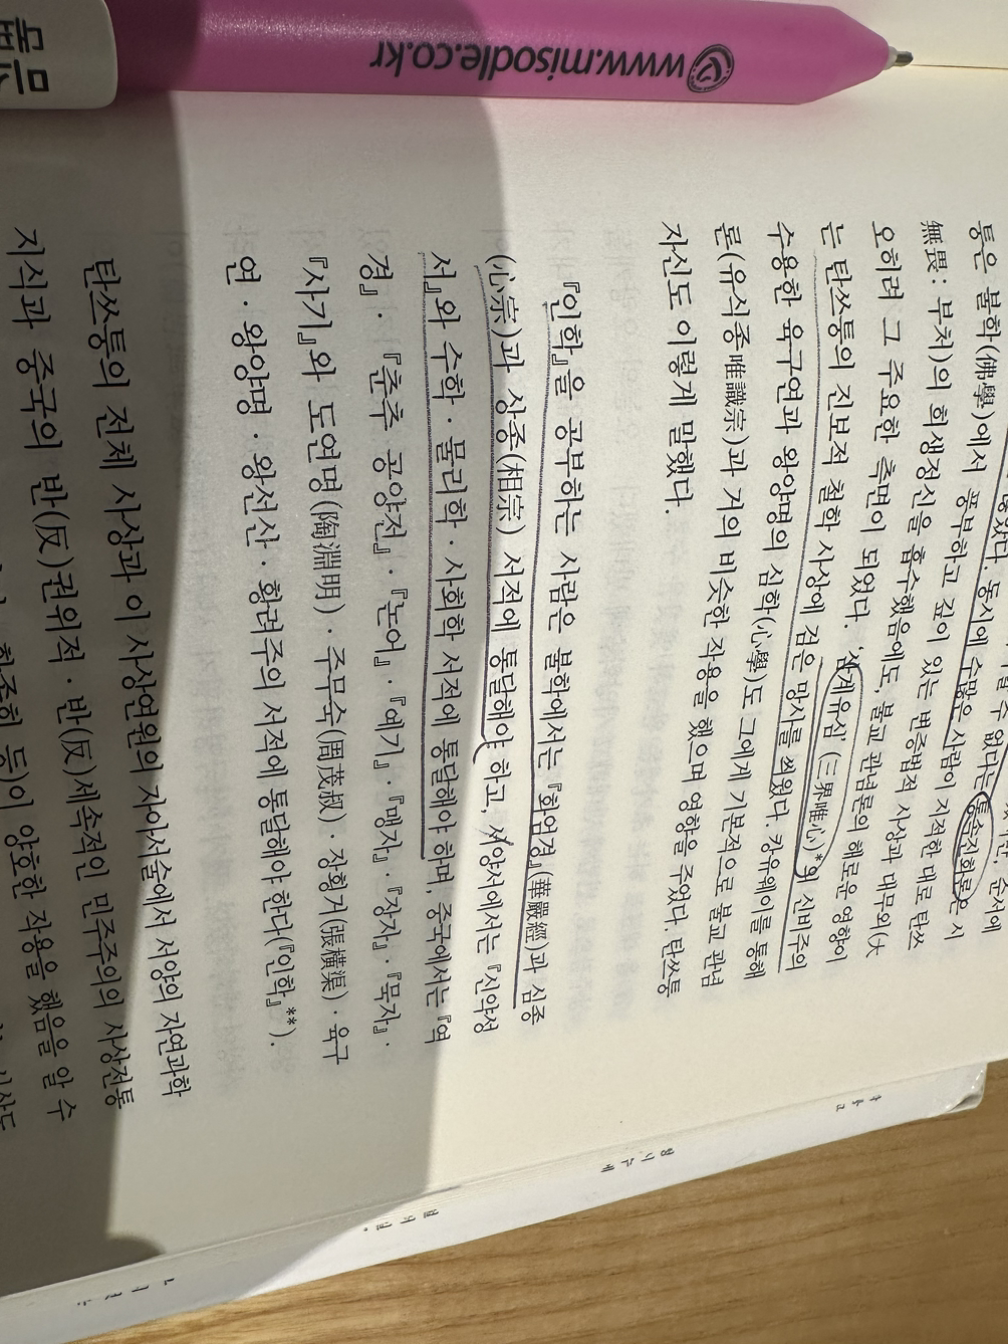 www.misodle.co.kr
않았다. 동시에 수많은 사람이 지적한 대로 탄쓰
통은 불학(佛學)에서 풍부하고 깊이 있는 변증법적 사상과 대무외(大
無畏: 부처)의 희생정신을 흡수했음에도, 불교 관념론의 해로운 영향이
오히려 그 주요한 측면이 되었다. '삼계유심(三界唯心)'*의 신비주의
는 탄쓰퉁의 진보적 철학 사상에 검은 망사를 씌웠다. 캉유웨이를 통해
수용한 육구연과 왕양명의 심학(心學)도 그에게 기본적으로 불교 관념
론(유식종唯識宗)과 거의 비슷한 작용을 했으며 영향을 주었다. 탄쓰퉁
자신도 이렇게 말했다.
『인학』을 공부하는 사람은 불학에서는 『화엄경』(華嚴經)과 심종
(心宗)과 상종(相宗) 서적에 통달해야 하고, 서양서에서는 『신약성
서』와 수학·물리학·사회학 서적에 통달해야 하며, 중국에서는 『역
경』·『춘추 공양전』·『논어』·『예기』·『맹자』·『장자』·『묵자』·
『사기』와 도연명(陶淵明)·주무숙(周茂叔)·장횡거(張橫渠)·육구
연·왕양명·왕선산·황려주의 서적에 통달해야 한다(『인학』**).
탄쓰퉁의 전체 사상과 이 사상연원의 자아서술에서 서양의 자연과학
지식과 중국의 반(反)권위적·반(反)세속적인 민주주의의 사상전통
황종희 등)이 양호한 작용을 했음을 알 수